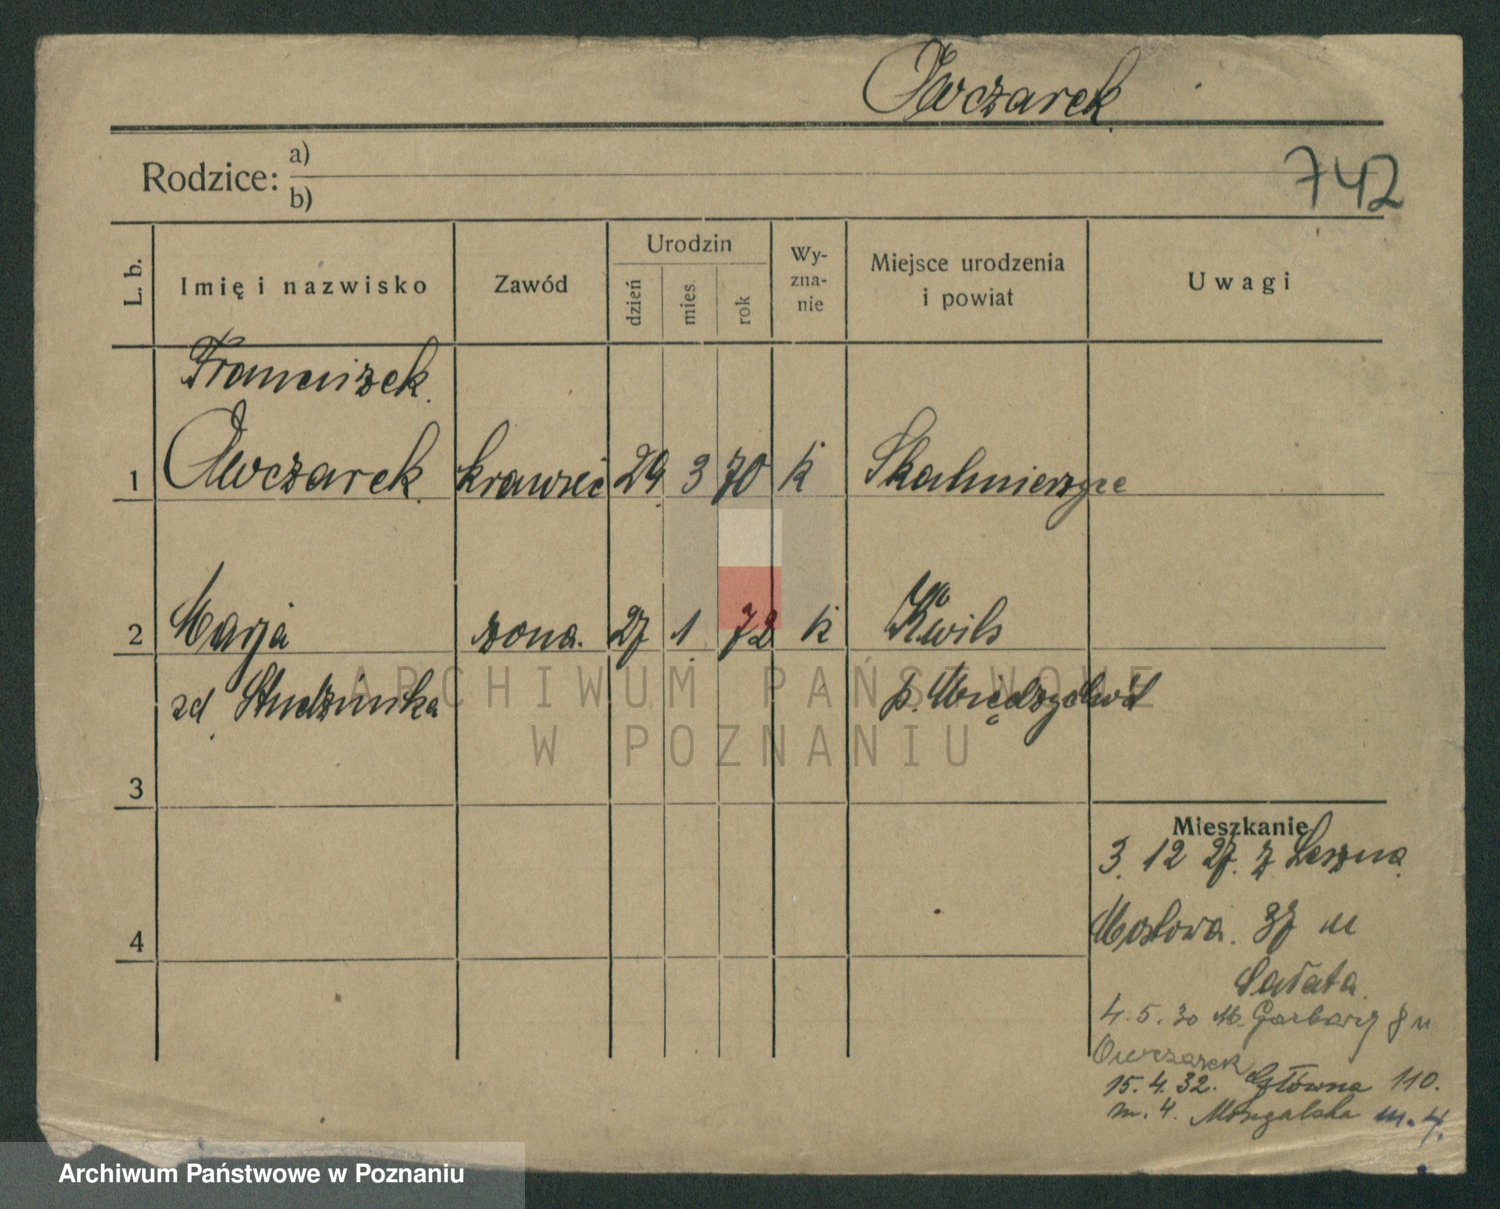 Owczarek
Rodzice: a)
b)
742
L. b.
Imię i nazwisko
Zawód
Urodzin
dzień
mies.
rok
Wy-
zna-
nie
Miejsce urodzenia
i powiat
Uwagi
Franciszek
1 Owczarek krawiec 29 3 70 k Skalmierzyce
2 Marja żona. 27 1. 72 k Kwilz
zd Studzinska p. Międzychód
3
4
Mieszkanie
3. 12 27. z Leszna
Mostowa. 37 m
Sałata
4. 5. 30 M. Garbary 8 u
Owczarek
15. 4. 32. Główna 110.
m. 4. Mongalska m. 4.
ARCHIWUM PAŃSTWOWE
W POZNANIU
Archiwum Państwowe w Poznaniu